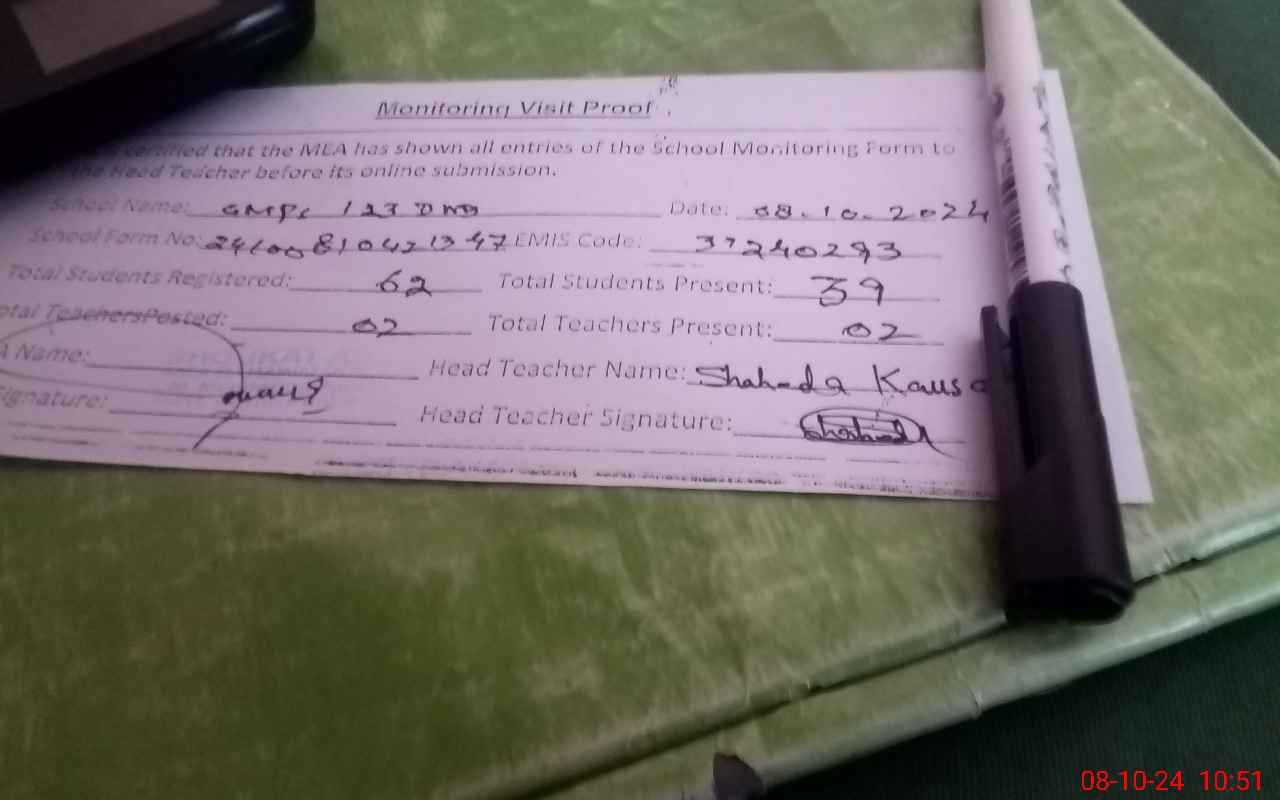 Monitoring Visit Proof
certified that the MEA has shown all entries of the School Monitoring Form to
the Head Teacher before its online submission.
School Name: GMPS 123 DNB Date: 08.10.2024
School Form No: 24100810421347 EMIS Code: 31240293
Total Students Registered: 62 Total Students Present: 39
Total TeachersPosted: 02 Total Teachers Present: 02
A Name: Head Teacher Name: Shaheda Kausa
ignature: Head Teacher Signature:
08-10-24 10:51